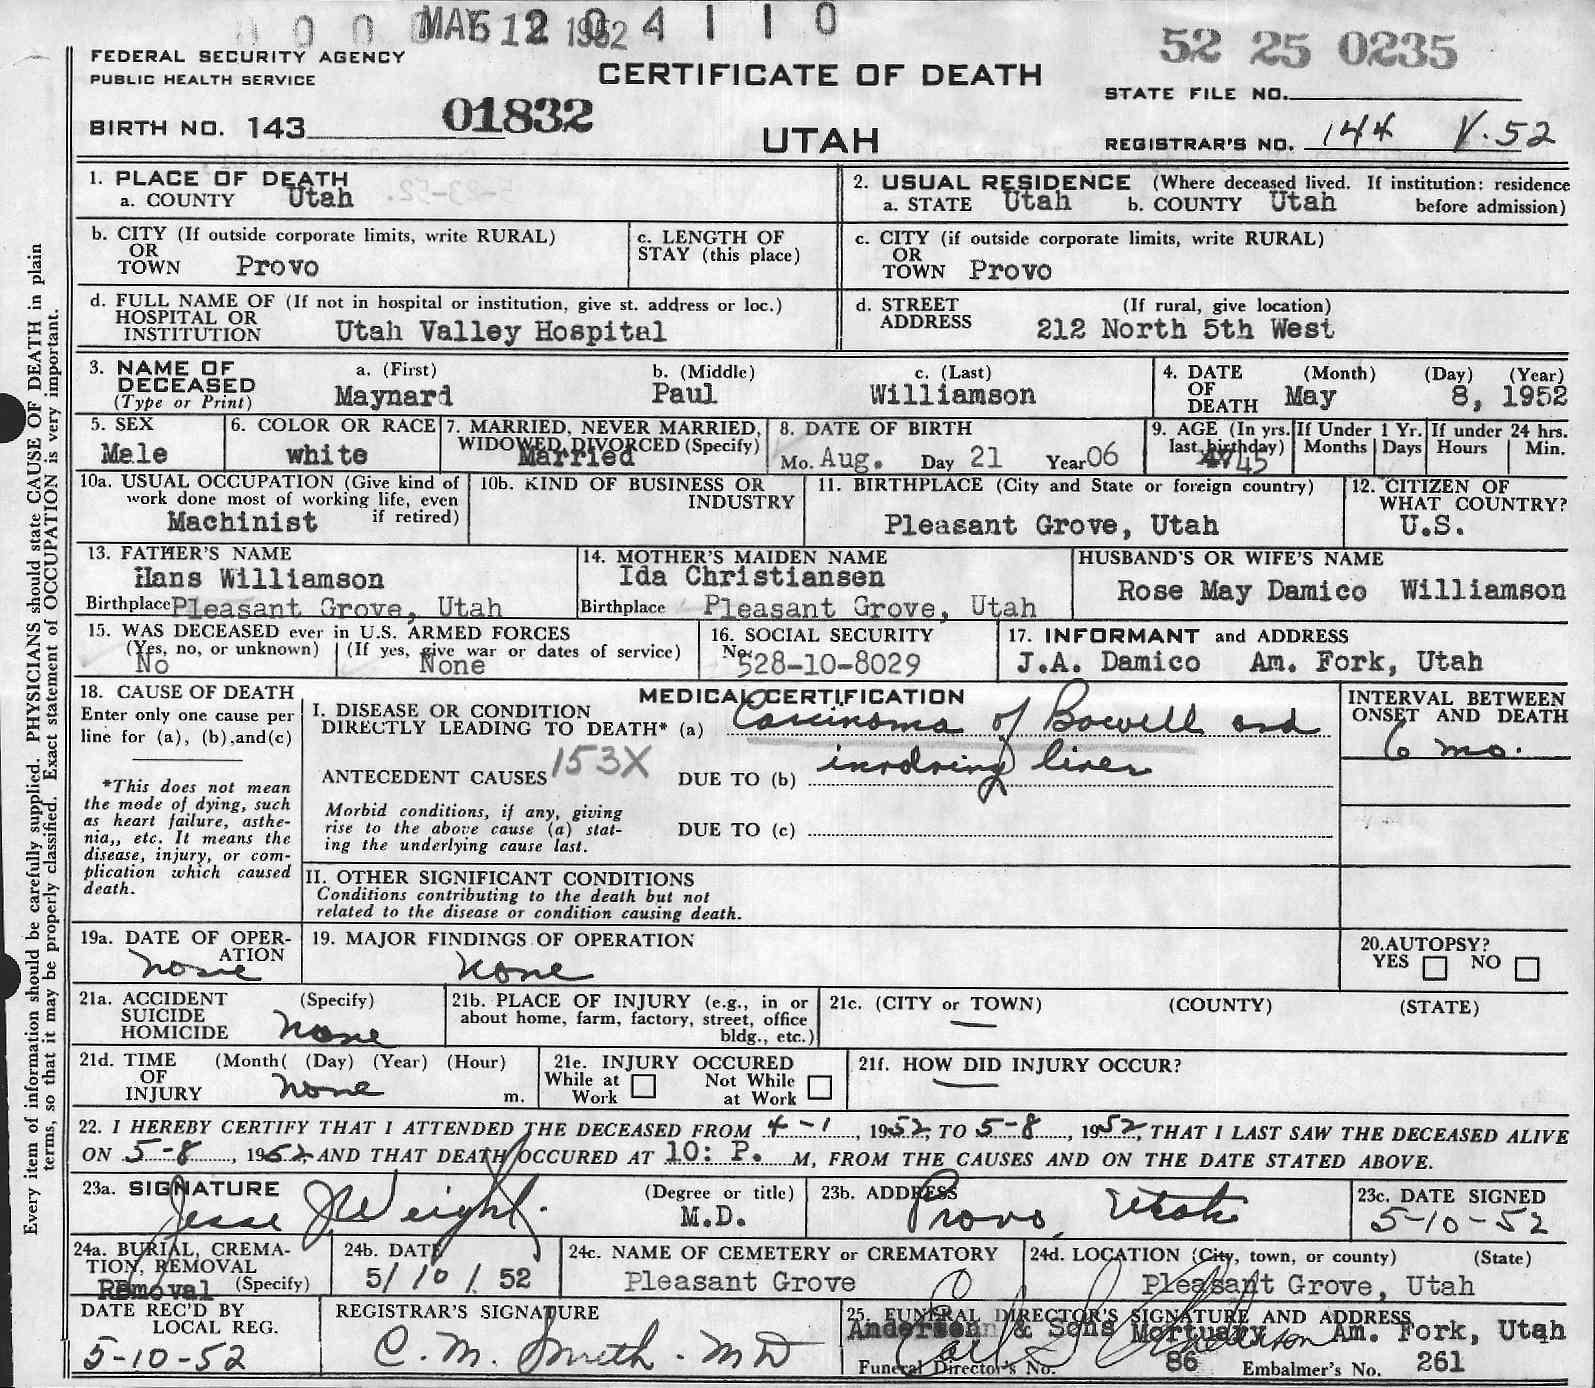 MAY 12 1952 4 1 1 0
52 25 0235
FEDERAL SECURITY AGENCY
PUBLIC HEALTH SERVICE
CERTIFICATE OF DEATH
STATE FILE NO.
BIRTH NO. 143 01832
UTAH
REGISTRAR'S NO. 144 V.52
1. PLACE OF DEATH
a. COUNTY Utah
2. USUAL RESIDENCE (Where deceased lived. If institution: residence before admission)
a. STATE Utah b. COUNTY Utah
b. CITY (If outside corporate limits, write RURAL)
OR
TOWN Provo
c. LENGTH OF
STAY (this place)
c. CITY (if outside corporate limits, write RURAL)
OR
TOWN Provo
d. FULL NAME OF (If not in hospital or institution, give st. address or loc.)
HOSPITAL OR
INSTITUTION Utah Valley Hospital
d. STREET (If rural, give location)
ADDRESS 212 North 5th West
3. NAME OF DECEASED (Type or Print)
a. (First) Maynard
b. (Middle) Paul
c. (Last) Williamson
4. DATE OF DEATH (Month) (Day) (Year)
May 8, 1952
5. SEX
Male
6. COLOR OR RACE
white
7. MARRIED, NEVER MARRIED,
WIDOWED, DIVORCED (Specify)
Married
8. DATE OF BIRTH
Mo. Aug. Day 21 Year 06
9. AGE (In yrs. last birthday)
45
If Under 1 Yr.
Months Days
If under 24 hrs.
Hours Min.
10a. USUAL OCCUPATION (Give kind of
work done most of working life, even
if retired)
Machinist
10b. KIND OF BUSINESS OR
INDUSTRY
11. BIRTHPLACE (City and State or foreign country)
Pleasant Grove, Utah
12. CITIZEN OF
WHAT COUNTRY?
U.S.
13. FATHER'S NAME
Hans Williamson
Birthplace Pleasant Grove, Utah
14. MOTHER'S MAIDEN NAME
Ida Christiansen
Birthplace Pleasant Grove, Utah
HUSBAND'S OR WIFE'S NAME
Rose May Damico Williamson
15. WAS DECEASED ever in U.S. ARMED FORCES
(Yes, no, or unknown) (If yes, give war or dates of service)
No None
16. SOCIAL SECURITY
No. 528-10-8029
17. INFORMANT and ADDRESS
J.A. Damico Am. Fork, Utah
18. CAUSE OF DEATH
Enter only one cause per
line for (a), (b), and (c)
*This does not mean
the mode of dying, such
as heart failure, asthe-
nia,, etc. It means the
disease, injury, or com-
plication which caused
death.
MEDICAL CERTIFICATION
I. DISEASE OR CONDITION
DIRECTLY LEADING TO DEATH* (a) Carcinoma of Bowell and
ANTECEDENT CAUSES 153X DUE TO (b) involving liver
Morbid conditions, if any, giving
rise to the above cause (a) stat-
ing the underlying cause last.
DUE TO (c)
INTERVAL BETWEEN
ONSET AND DEATH
6 mo.
II. OTHER SIGNIFICANT CONDITIONS
Conditions contributing to the death but not
related to the disease or condition causing death.
19a. DATE OF OPER-
ATION
none
19. MAJOR FINDINGS OF OPERATION
none
20. AUTOPSY?
YES NO
21a. ACCIDENT (Specify)
SUICIDE
HOMICIDE none
21b. PLACE OF INJURY (e.g., in or
about home, farm, factory, street, office
bldg., etc.)
21c. (CITY or TOWN) (COUNTY) (STATE)
—
21d. TIME (Month( (Day) (Year) (Hour)
OF
INJURY none m.
21e. INJURY OCCURED
While at Work Not While at Work
21f. HOW DID INJURY OCCUR?
—
22. I HEREBY CERTIFY THAT I ATTENDED THE DECEASED FROM 4-1, 1952, TO 5-8, 1952, THAT I LAST SAW THE DECEASED ALIVE
ON 5-8, 1952, AND THAT DEATH OCCURED AT 10: P. M, FROM THE CAUSES AND ON THE DATE STATED ABOVE.
23a. SIGNATURE (Degree or title)
Jesse J Weight. M.D.
23b. ADDRESS
Provo, Utah
23c. DATE SIGNED
5-10-52
24a. BURIAL, CREMA-
TION, REMOVAL
Removal (Specify)
24b. DATE
5/10/52
24c. NAME OF CEMETERY or CREMATORY
Pleasant Grove
24d. LOCATION (City, town, or county) (State)
Pleasant Grove, Utah
DATE REC'D BY
LOCAL REG.
5-10-52
REGISTRAR'S SIGNATURE
C. M. Smith. MD
25. FUNERAL DIRECTOR'S SIGNATURE AND ADDRESS
Anderson & Sons Mortuary Am. Fork, Utah
Funeral Director's No. 86 Embalmer's No. 261
Every item of information should be carefully supplied. PHYSICIANS should state CAUSE OF DEATH in plain
terms, so that it may be properly classified. Exact statement of OCCUPATION is very important.